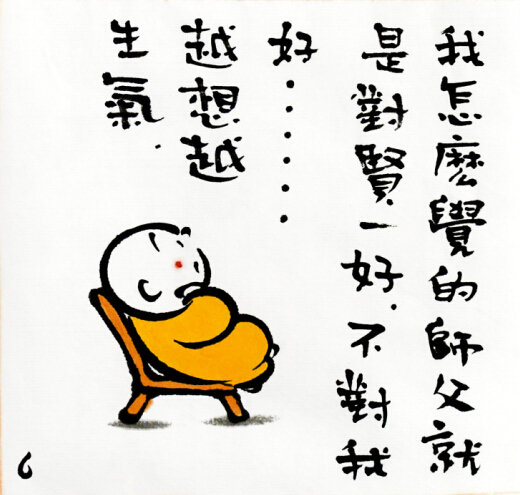 我怎麼覺的師父就
是對賢一好.不對我
好......
越想越
生氣.
6